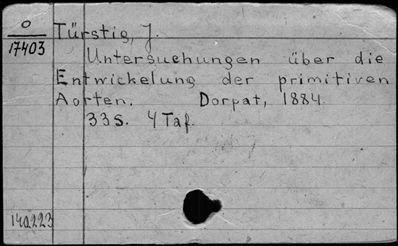 0
17403
Türstig, J.
Untersuchungen über die
Entwickelung der primitiven
Aorten. Dorpat, 1884.
33 S. 4 Taf.
140223